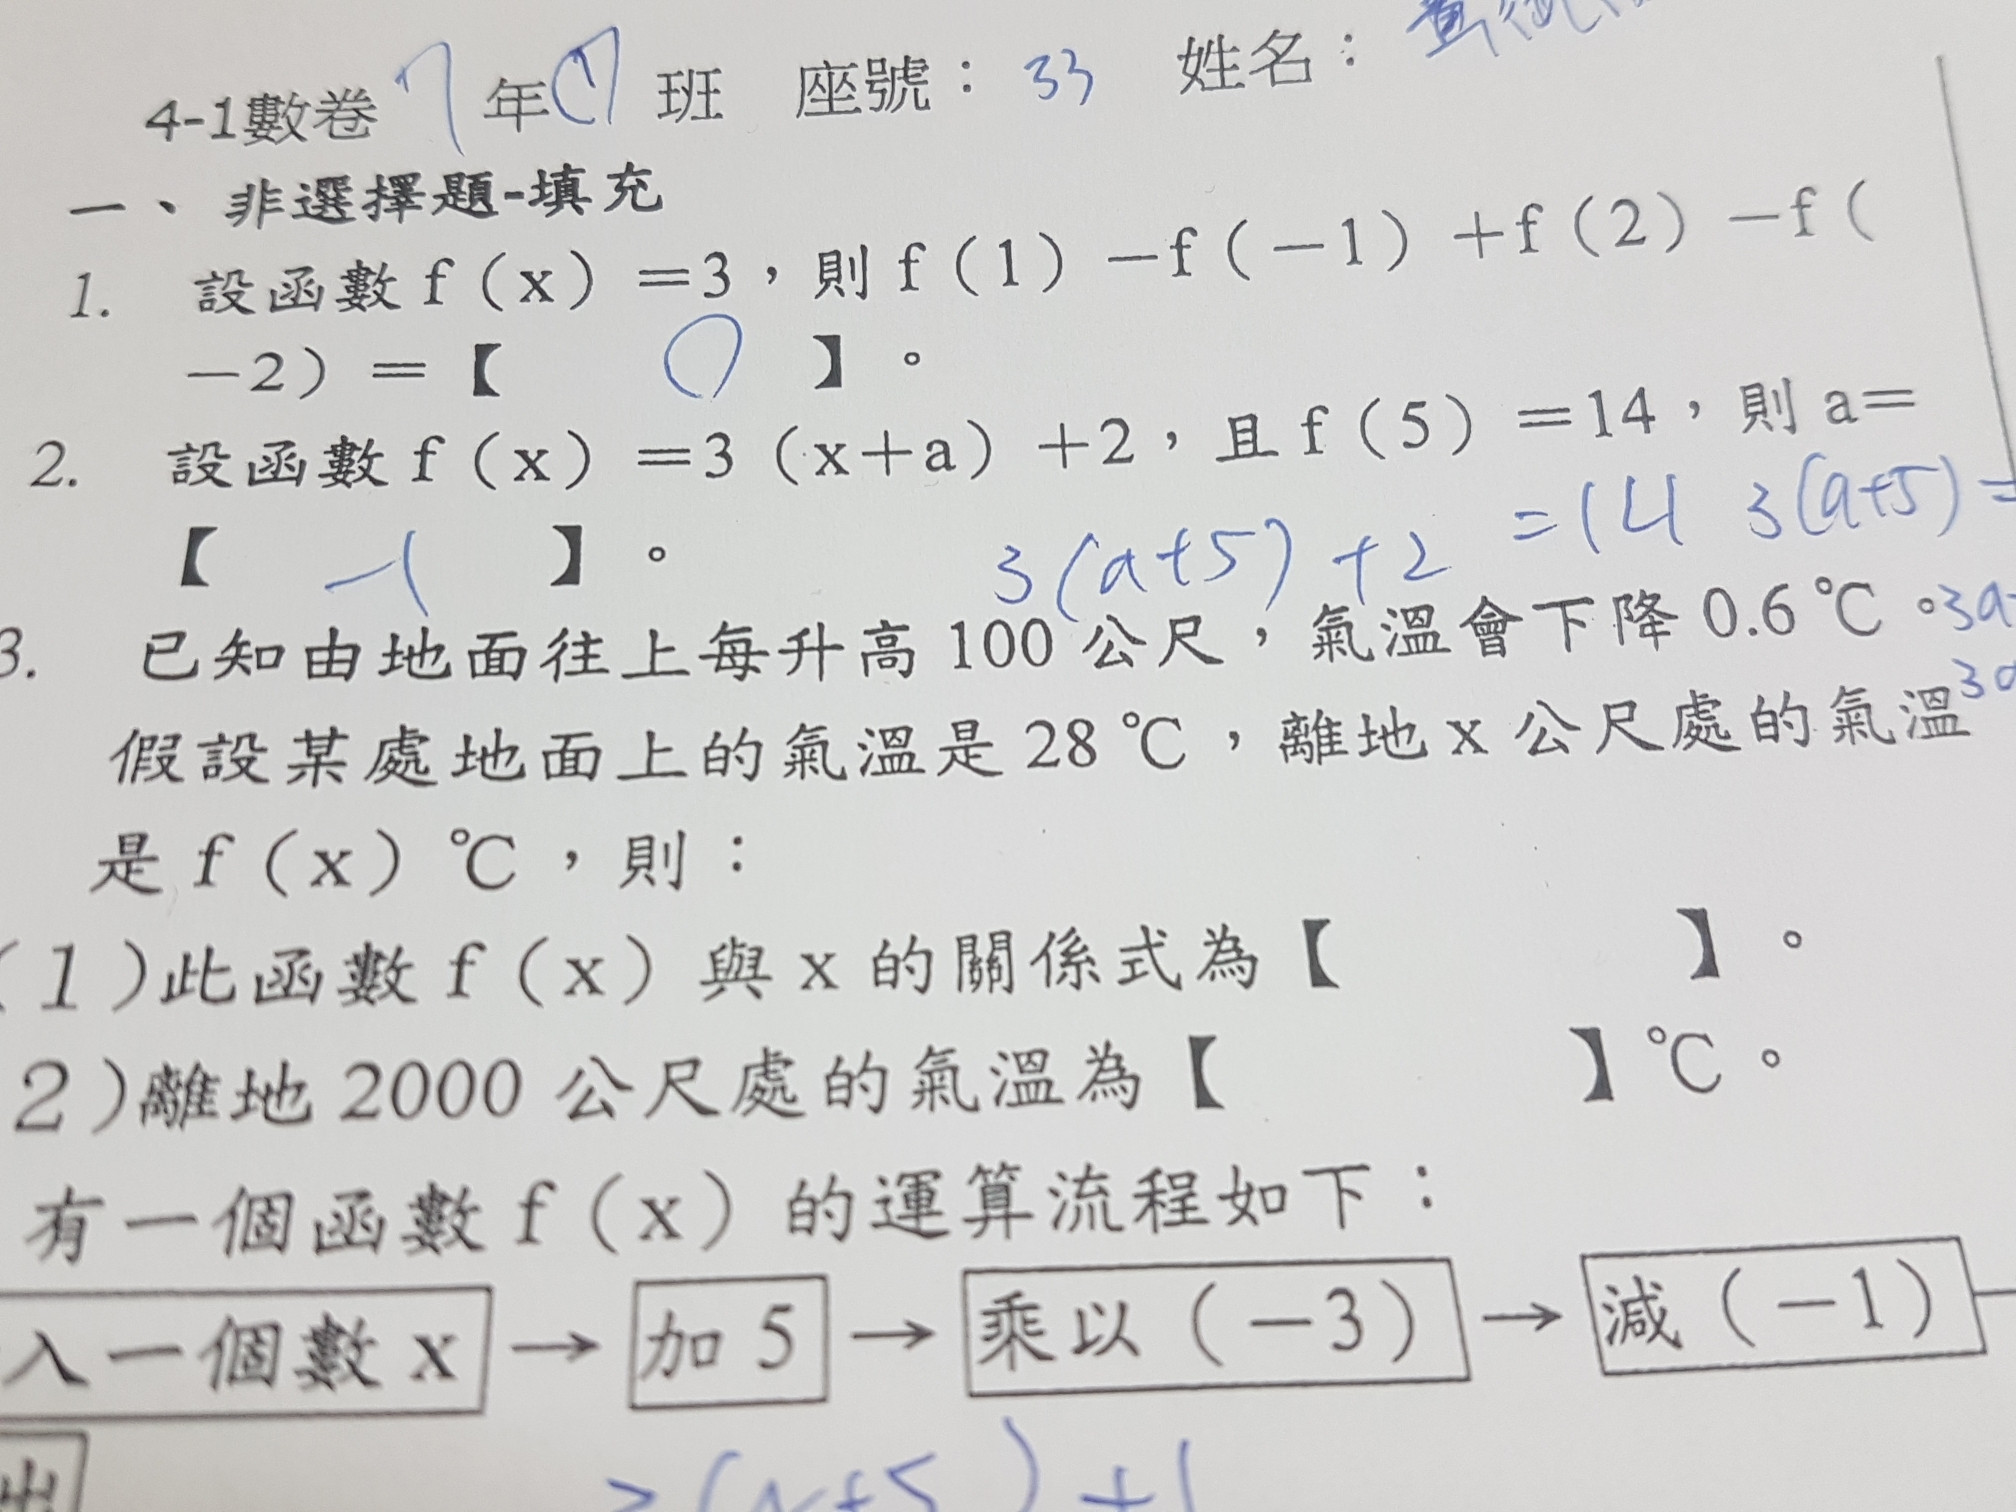 4-1數卷 7 年 17 班 座號： 33 姓名： 黃
一、 非選擇題-填充
1. 設函數 f（x）＝3，則 f（1）－f（－1）＋f（2）－f（
－2）＝【 0 】。
2. 設函數 f（x）＝3（x＋a）＋2，且 f（5）＝14，則 a＝
【 -1 】。 3(a+5)+2 =14 3(a+5)=
3. 已知由地面往上每升高 100 公尺，氣溫會下降 0.6℃。3a
假設某處地面上的氣溫是 28℃，離地 x 公尺處的氣溫 3a
是 f（x）℃，則：
(1)此函數 f（x）與 x 的關係式為【 】。
2)離地 2000 公尺處的氣溫為【 】℃。
有一個函數 f（x）的運算流程如下：
入一個數 x → 加 5 → 乘以（－3） → 減（－1）
出 (x+5)+1